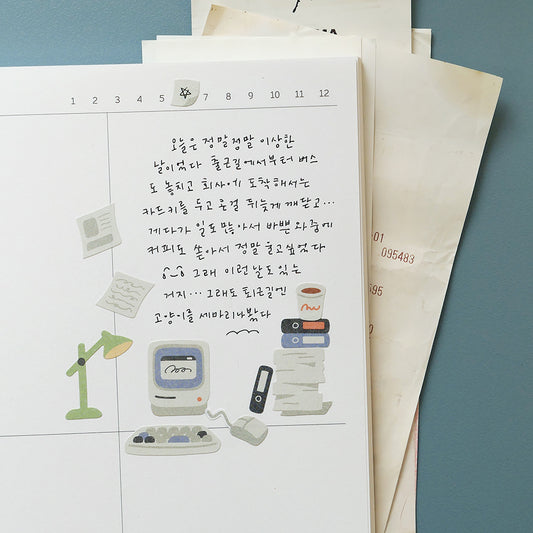 1 2 3 4 5 7 8 9 10 11 12
오늘은 정말정말 이상한
날이었다 출근길에서부터 버스
도 놓치고 회사에 도착해서는
카드키를 두고 온걸 뒤늦게 깨닫고...
게다가 일도많아서 바쁜 와중에
커피도 쏟아서 정말 울고싶었다
그래 이런날도있는
거지... 그래도 퇴근길엔
고양이를 세마리나봤다
01
095483
595